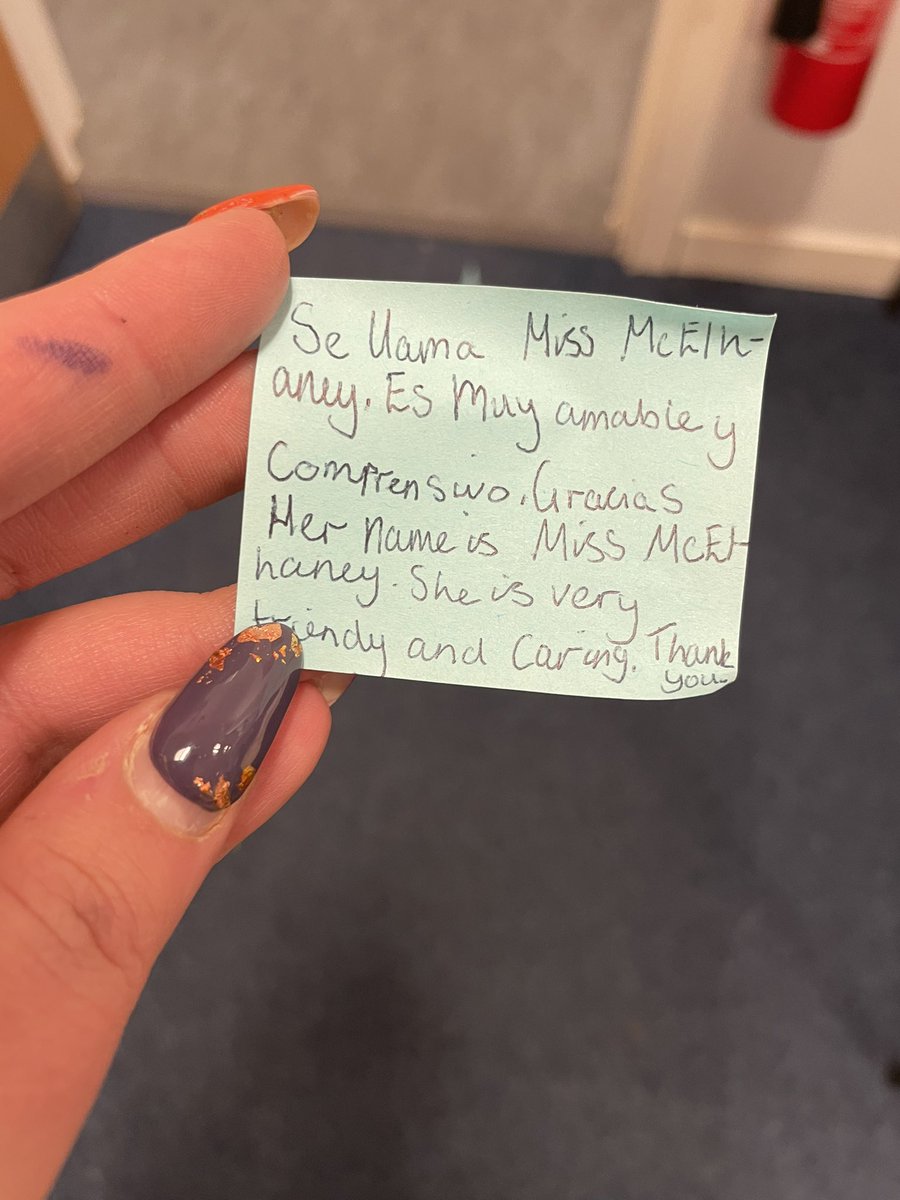 Se llama Miss McElh-
aney. Es Muy amable y
Comprensivo. Gracias
Her name is Miss McEl-
haney. She is very
friendy and Caring. Thank
you.